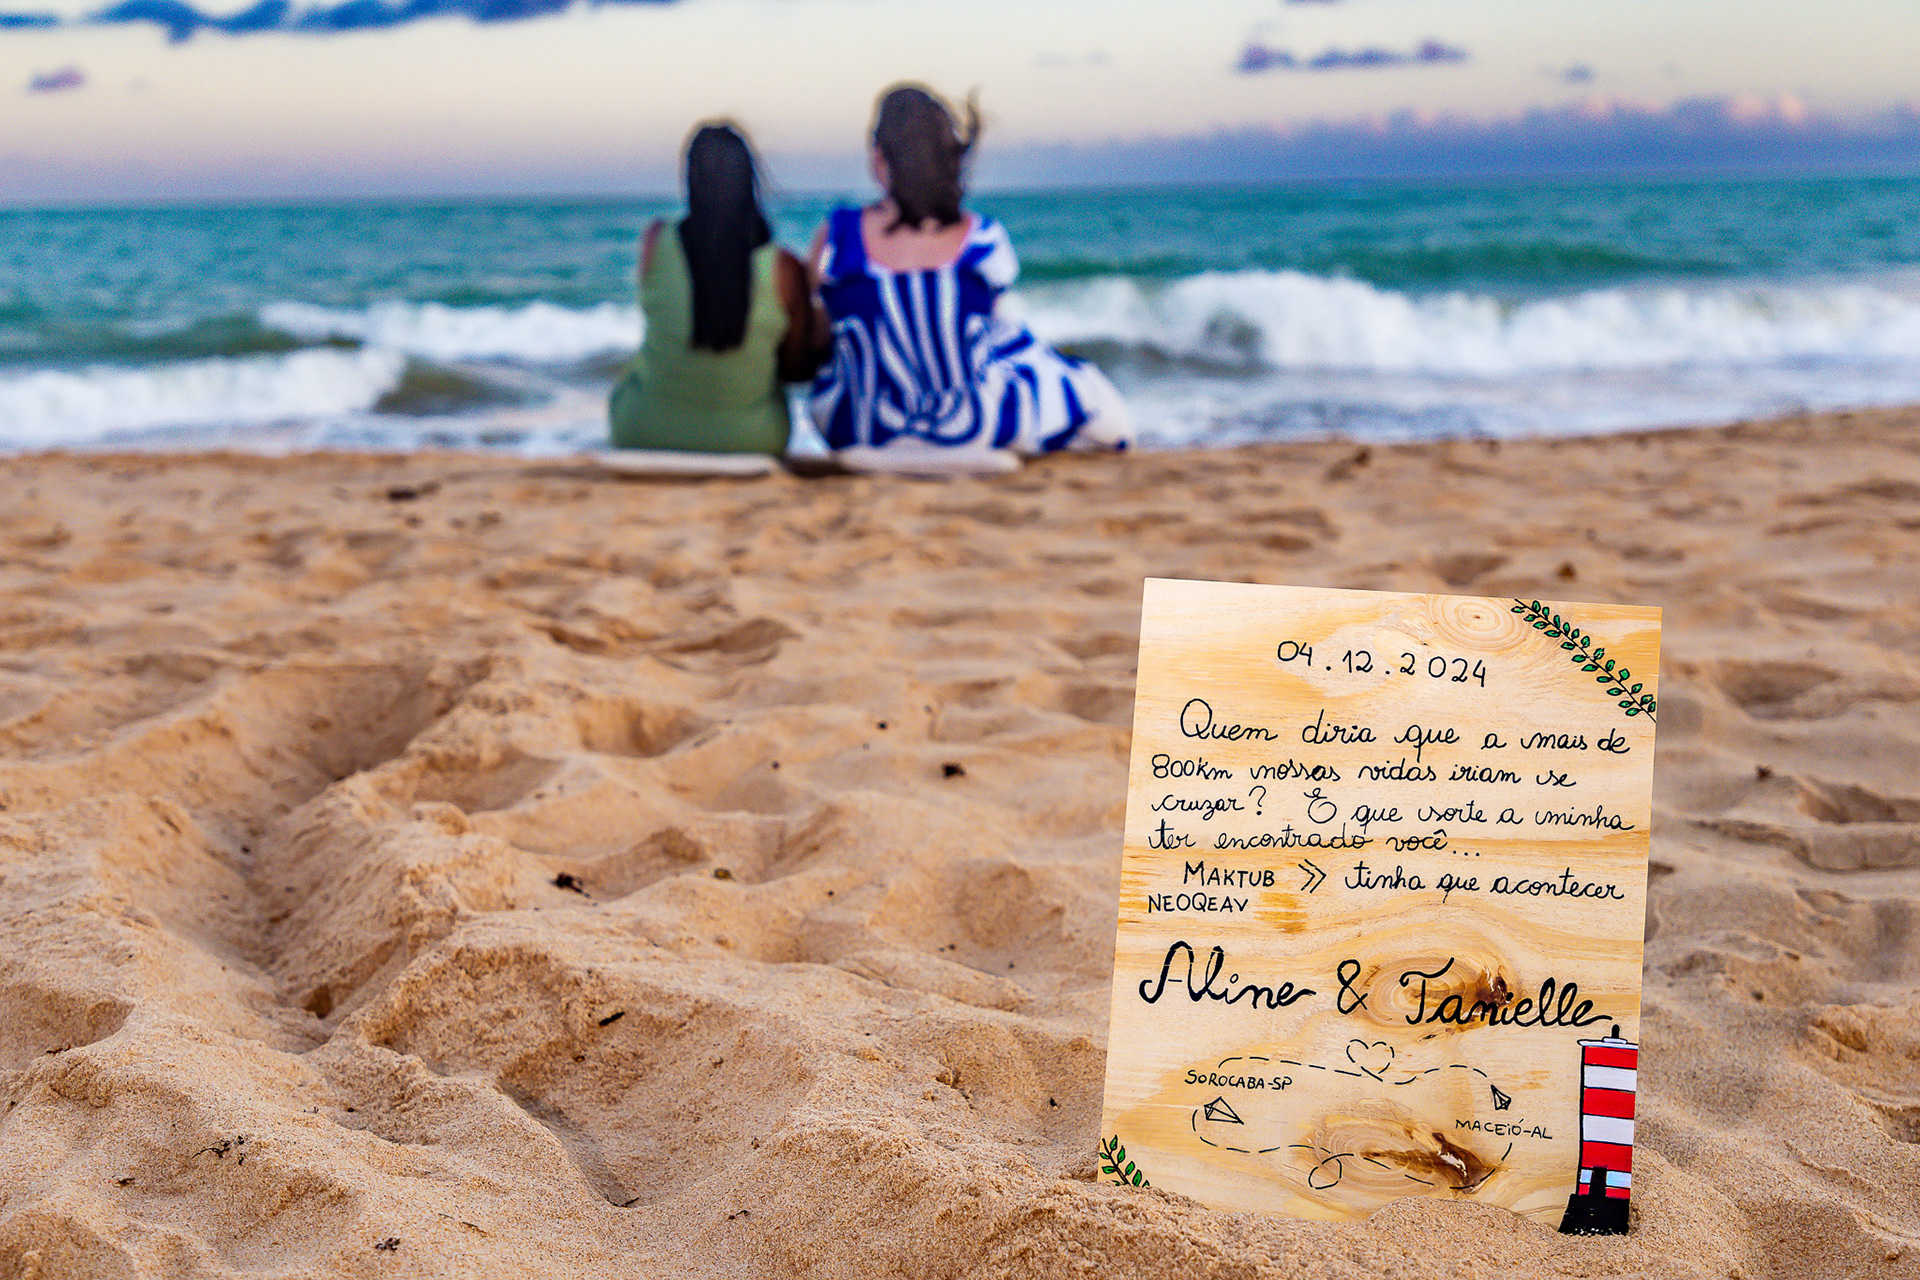 04.12.2024
Quem diria que a mais de
800km nossas vidas iriam se
cruzar? E que sorte a minha
ter encontrado você...
MAKTUB >> tinha que acontecer
NEOQEAV
Aline & Tanielle
SOROCABA-SP
MACEIÓ-AL